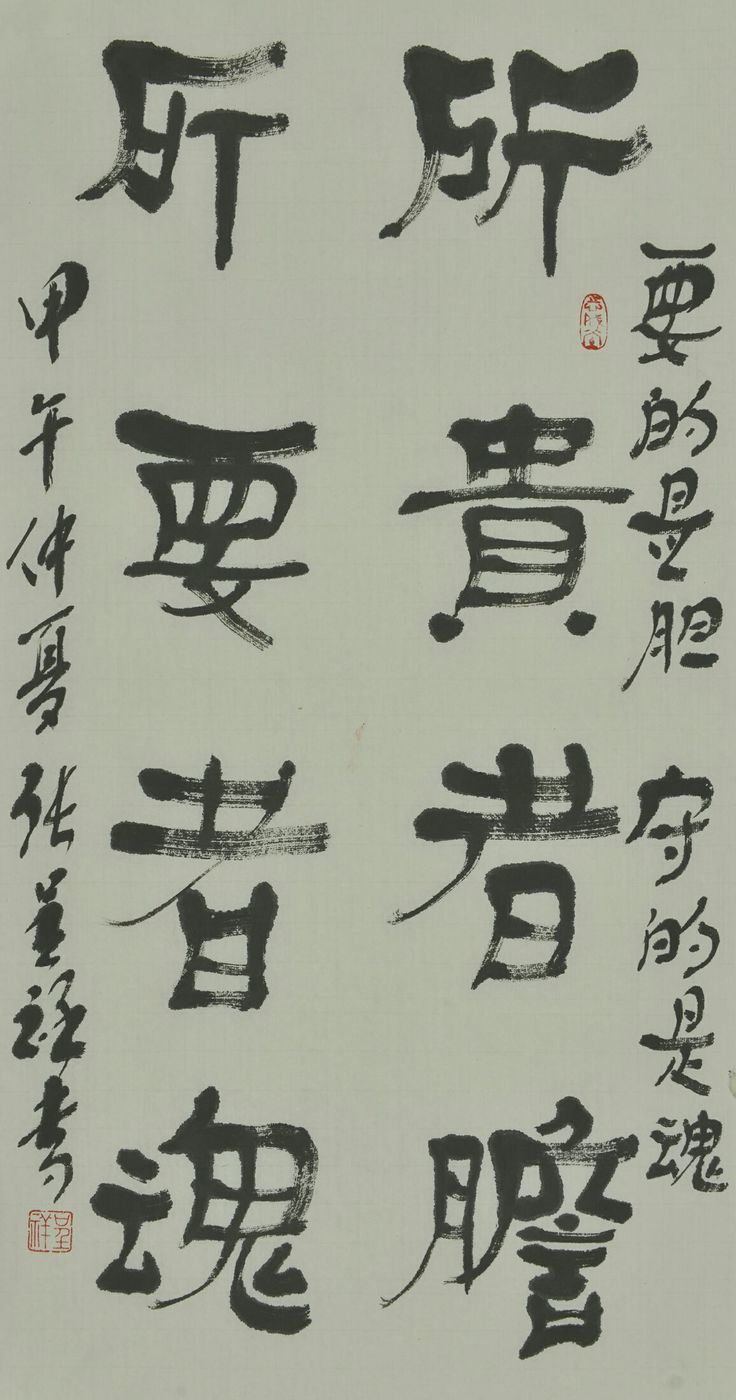 要的是胆 守的是魂
所貴者膽
所要者魂
甲午仲夏张呈祥書
呈祥